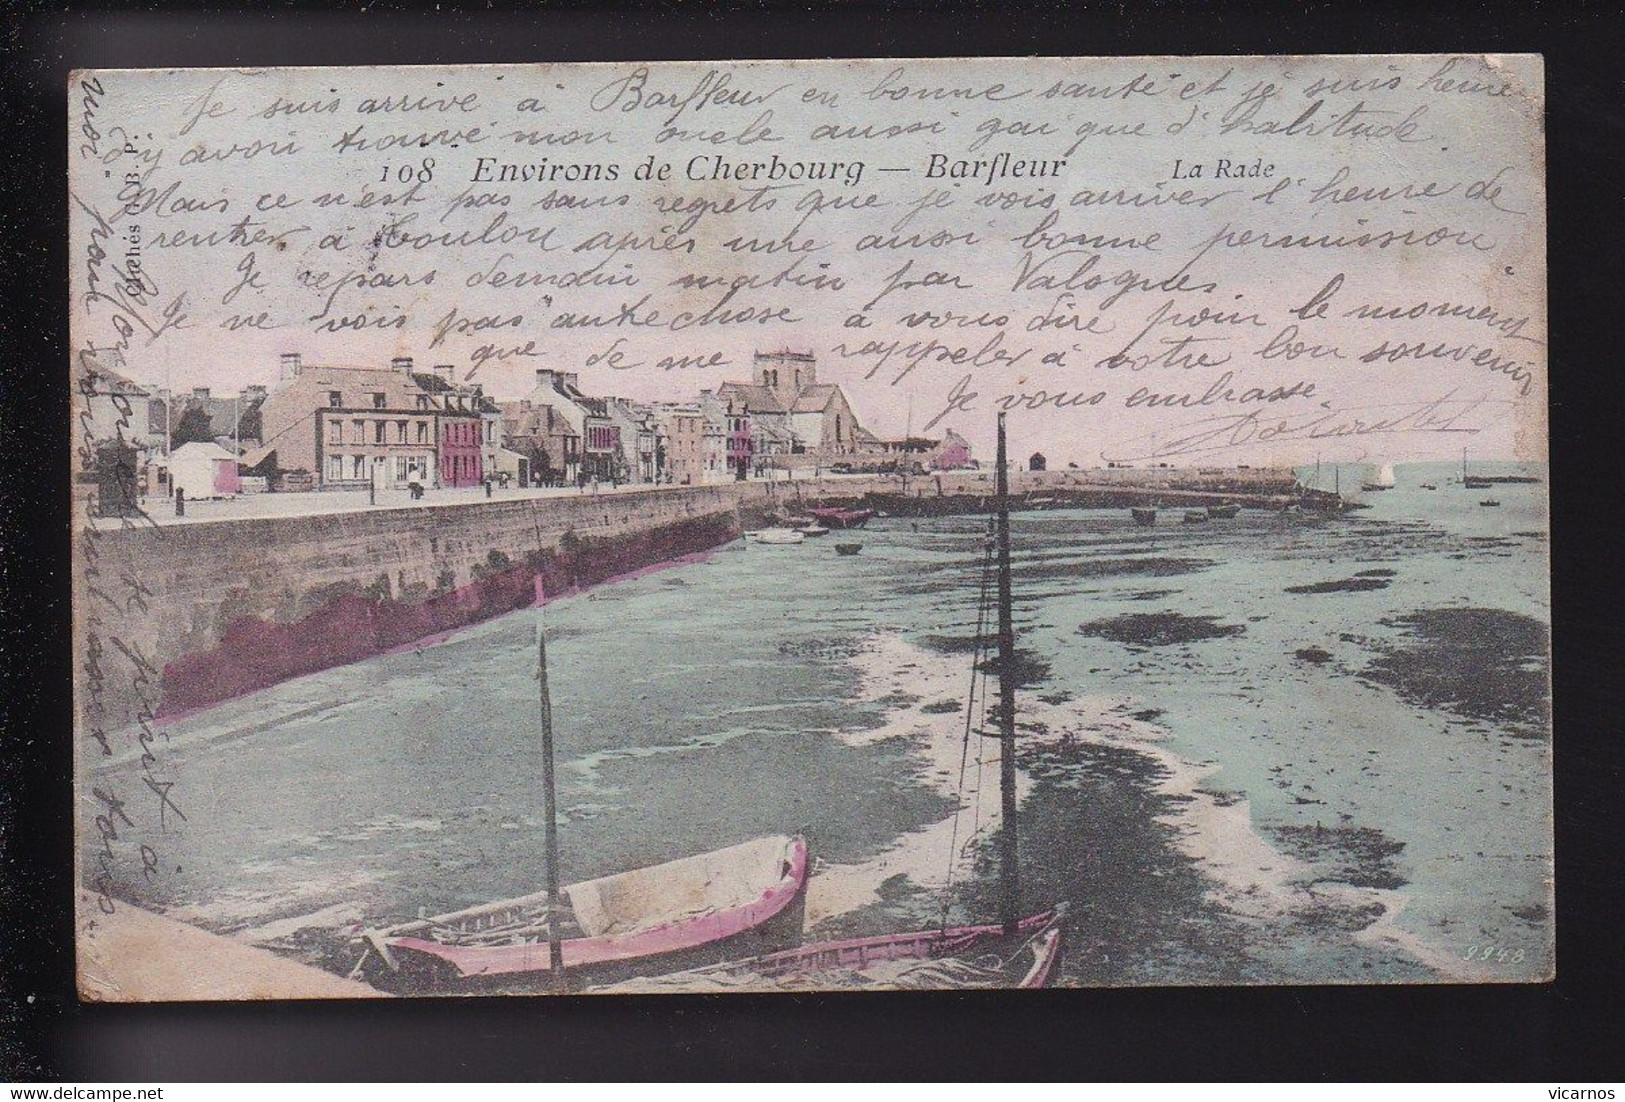 Je suis arrivé à Barfleur en bonne santé et je suis heureux
d'y avoir trouvé mon oncle aussi gai que d'habitude.
108 Environs de Cherbourg — Barfleur La Rade
Mais ce n'est pas sans regrets que je vois arriver l'heure de
rentrer à Toulon après une aussi bonne permission
Je repars demain matin par Valognes
Je ne vois pas autre chose à vous dire pour le moment
que de me rappeler à votre bon souvenir
Je vous embrasse.
Clichés B. P.
Mon oncle se joint à
moi pour vous embrasser tous.
9948
vicarnos